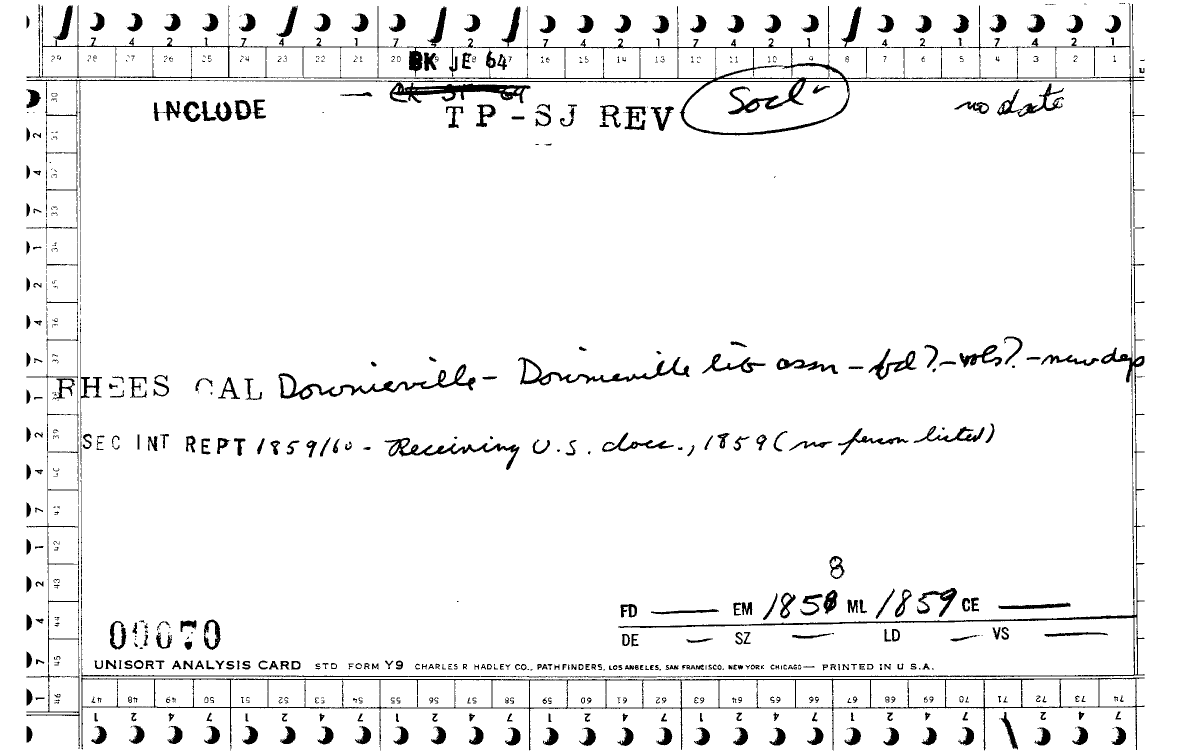 7 4 2 1 7 4 2 1 7 4 2 1 7 4 2 1 7 4 2 1 7 4 2 1 7 4 2 1
29 28 27 26 25 24 23 22 21 20 17 16 15 14 13 12 11 10 9 8 7 6 5 4 3 2 1
BK JE 64
INCLUDE — TP-SJ REV Socl no date
RHEES CAL Downieville - Downieville lib assn - fd? - vols? - newdep
SEC INT REPT 1859/60 - Receiving U.S. docs., 1859 (no person listed)
8
FD — EM 1858 ML 1859 CE —
DE — SZ — LD — VS —
00070
UNISORT ANALYSIS CARD STD FORM Y9 CHARLES R HADLEY CO., PATHFINDERS, LOS ANGELES, SAN FRANCISCO, NEW YORK CHICAGO — PRINTED IN U S A.
47 48 49 50 51 52 53 54 55 56 57 58 59 60 61 62 63 64 65 66 67 68 69 70 71 72 73 74